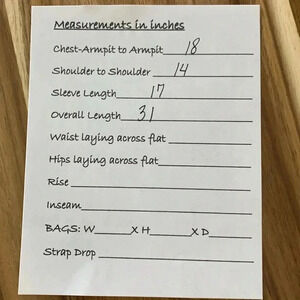 Measurements in inches
Chest-Armpit to Armpit 18
Shoulder to Shoulder 14
Sleeve Length 17
Overall Length 31
Waist laying across flat
Hips laying across flat
Rise
Inseam
BAGS: W______X H______X D______
Strap Drop